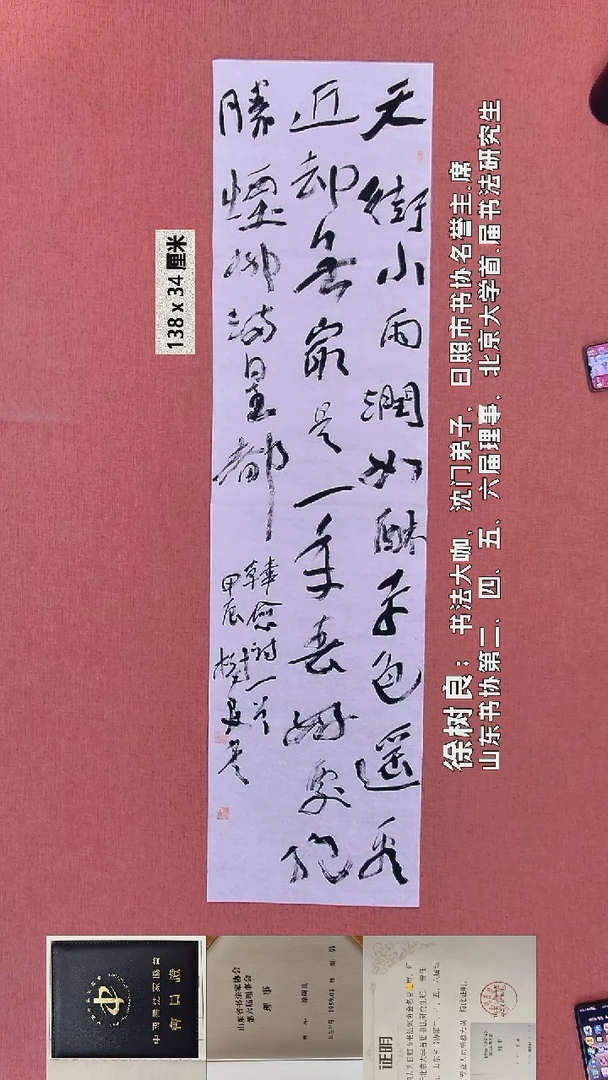 天街小雨潤如酥草色遥看
近却無最是一年春好處绝
勝煙柳满皇都
韓愈詩一首
甲辰樹良書
138 x 34 厘米
徐树良：书法大咖、沈门弟子、日照市书协名誉主.席
山东书协第二、四、五、六届理事、北京大学首.届书法研究生
中国书法家协会
會員證
山东省书法家协会
第六届理事会
理事
证明